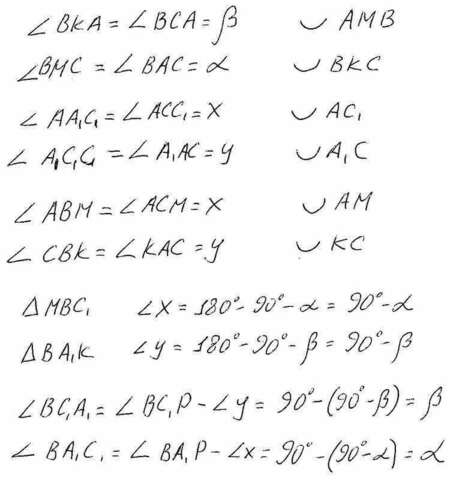 ∠BKA = ∠BCA = β ◡ AMB
∠BMC = ∠BAC = α ◡ BKC
∠AA₁C₁ = ∠ACC₁ = x ◡ AC₁
∠A₁C₁C = ∠A₁AC = y ◡ A₁C
∠ABM = ∠ACM = x ◡ AM
∠CBK = ∠KAC = y ◡ KC
△MBC₁ ∠x = 180° - 90° - α = 90° - α
△BA₁K ∠y = 180° - 90° - β = 90° - β
∠BC₁A₁ = ∠BC₁P - ∠y = 90° - (90° - β) = β
∠BA₁C₁ = ∠BA₁P - ∠x = 90° - (90° - α) = α